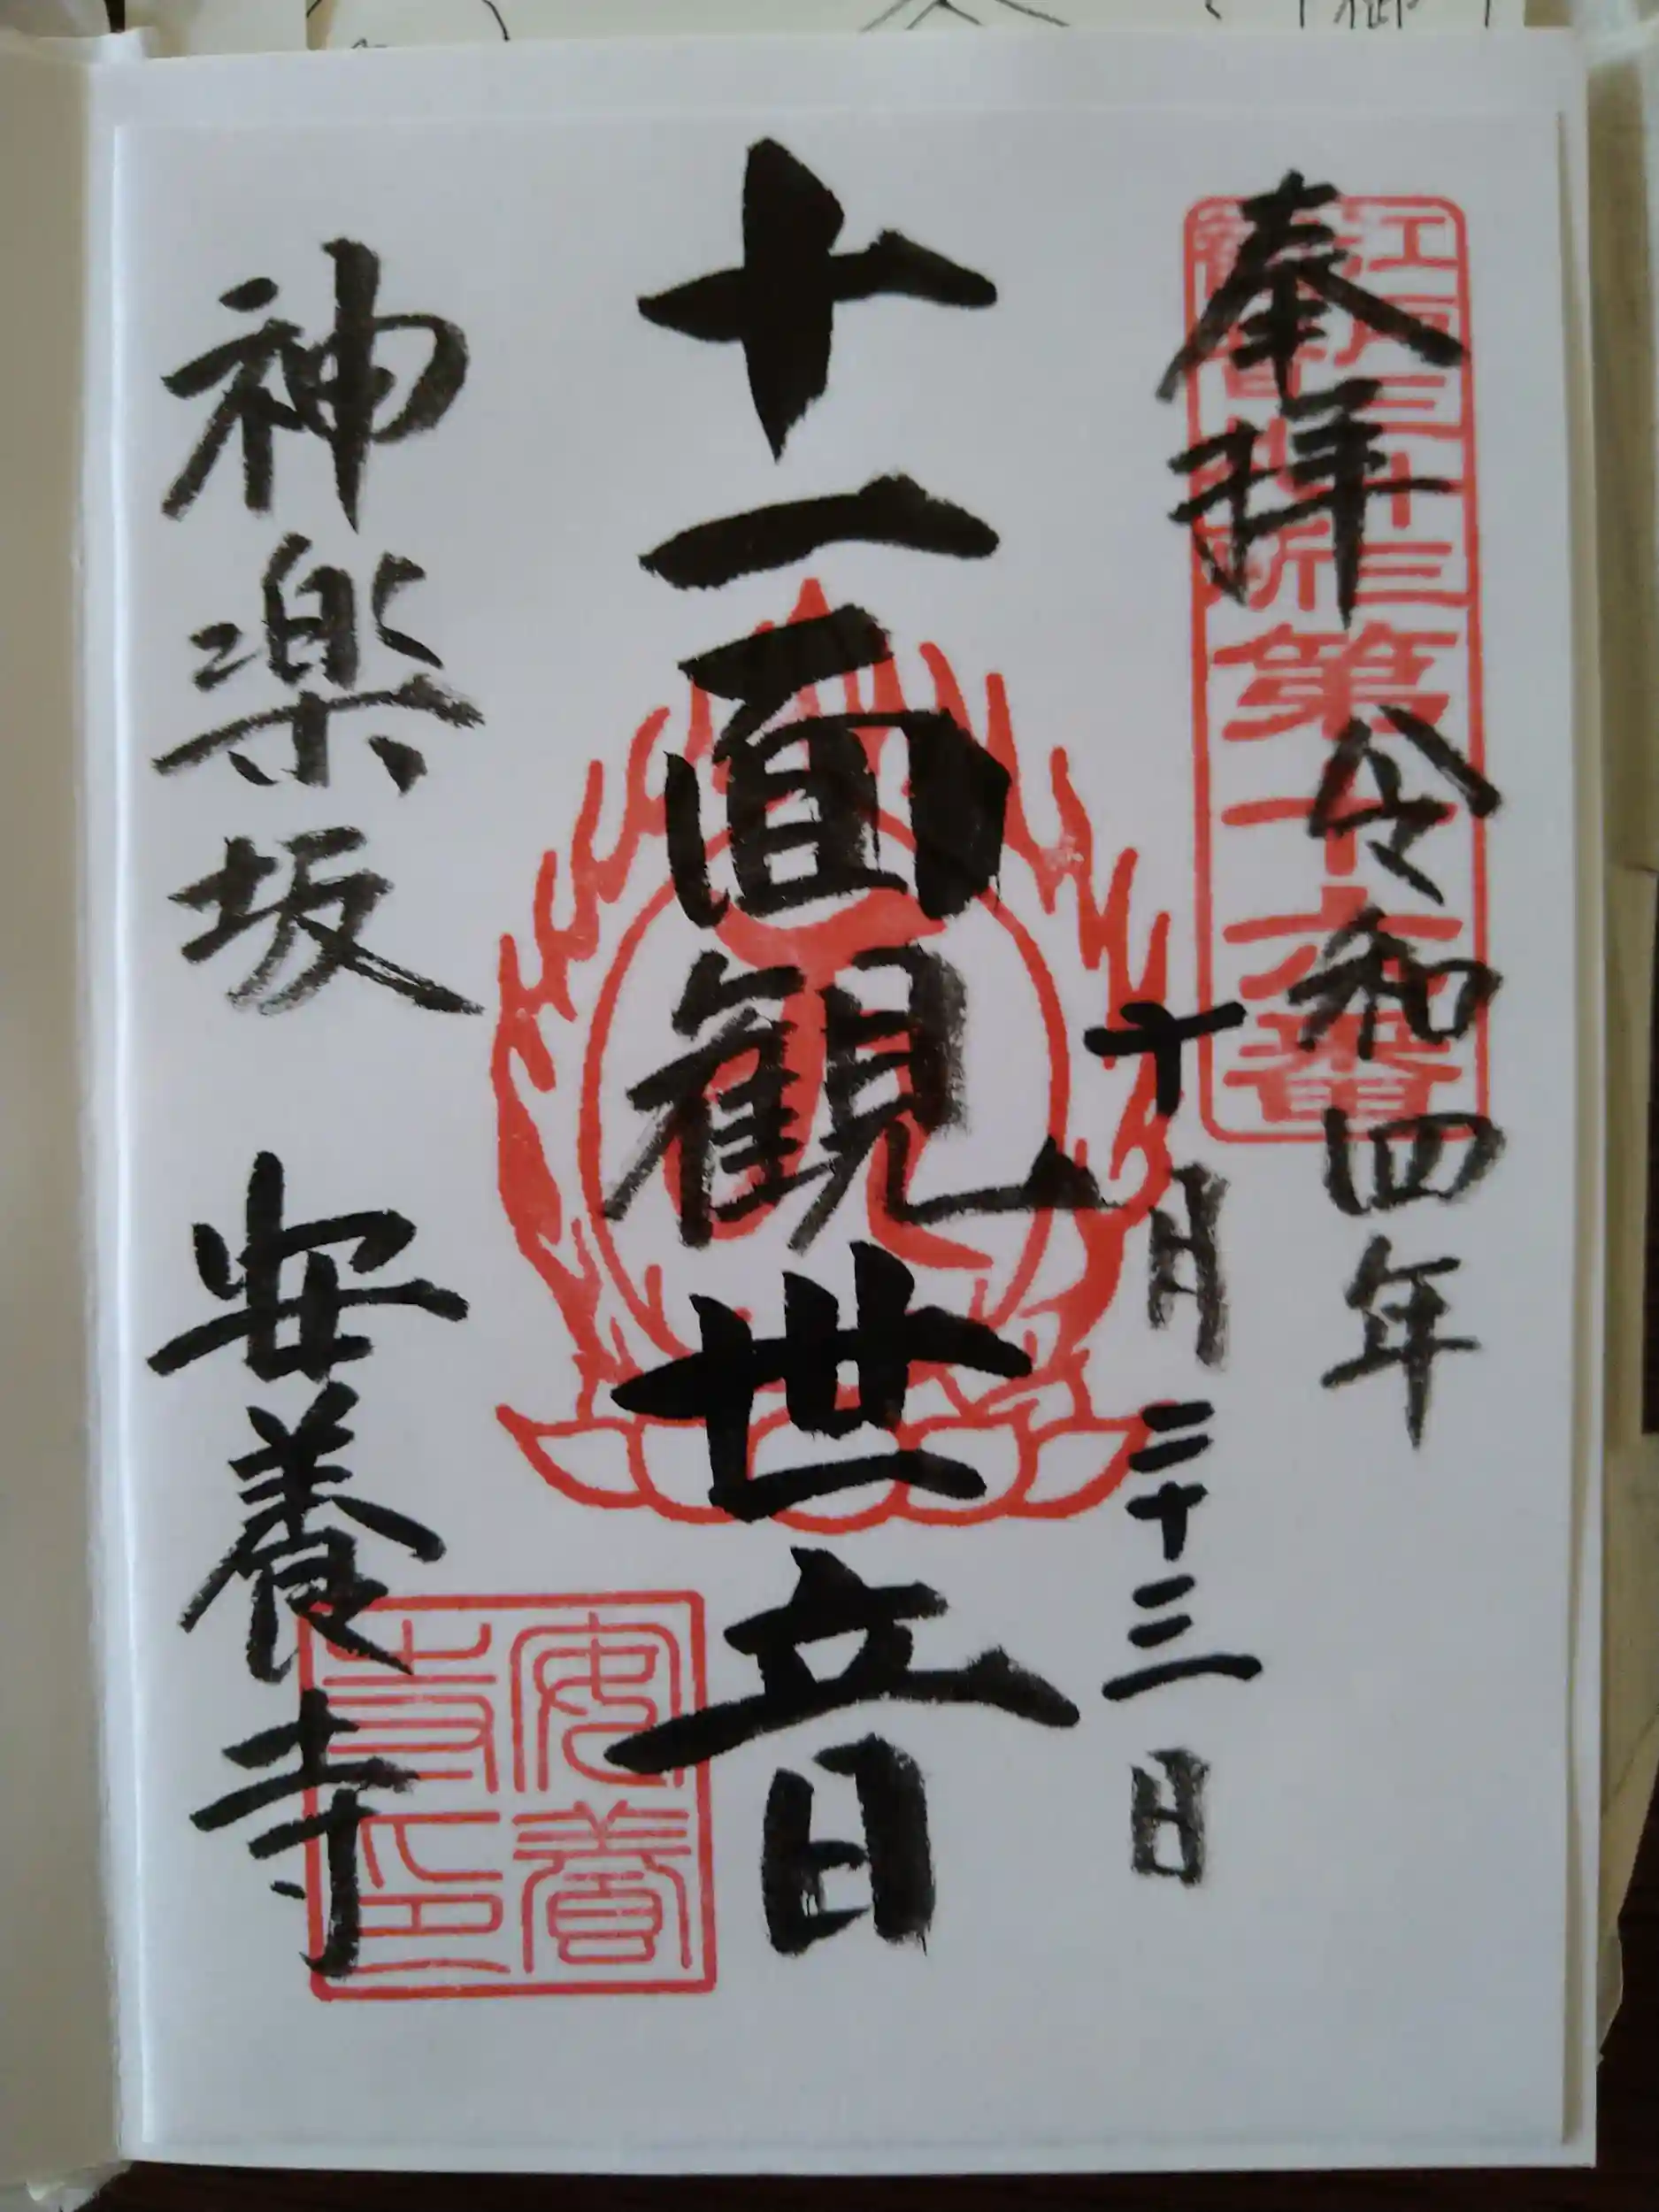 奉拝
江戸三十三
観音札所
第十六番
令和四年
十月二十三日
十一面観世音
神楽坂 安養寺
安養
寺印